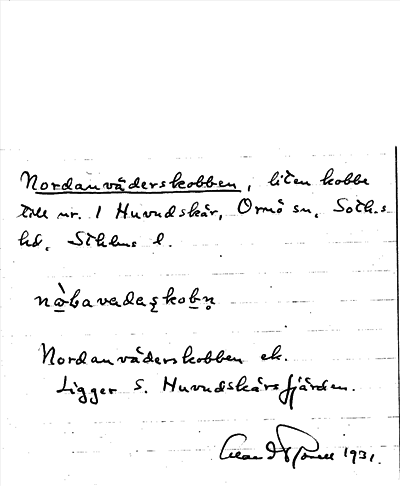 Nordanväderskobben, liten kobbe
till nr. 1 Huvudskär, Ornö sn, Soth.s
hd, Sthlms l.
Nordanväderskobben ek.
Ligger S. Huvudskärsfjärden.
1931.